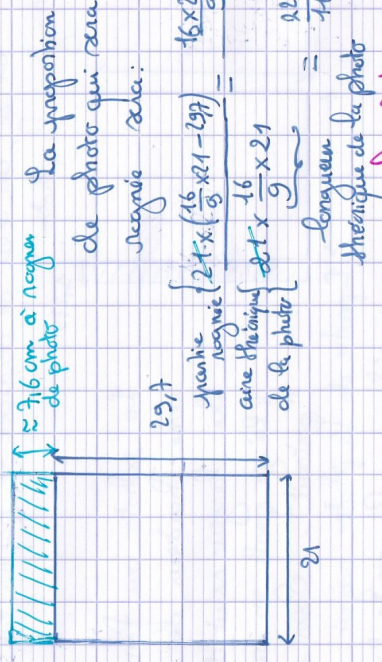 ≈ 7,6 cm à rogner
de photo
29,7
21
La proportion
de photo qui sera
rognée sera:
partie rognée { 21 × (16/9 × 21 - 297) = 16 × 2
aire théorique de la photo { 21 × 16/9 × 21
longueur
théorique de la photo
= 22
11